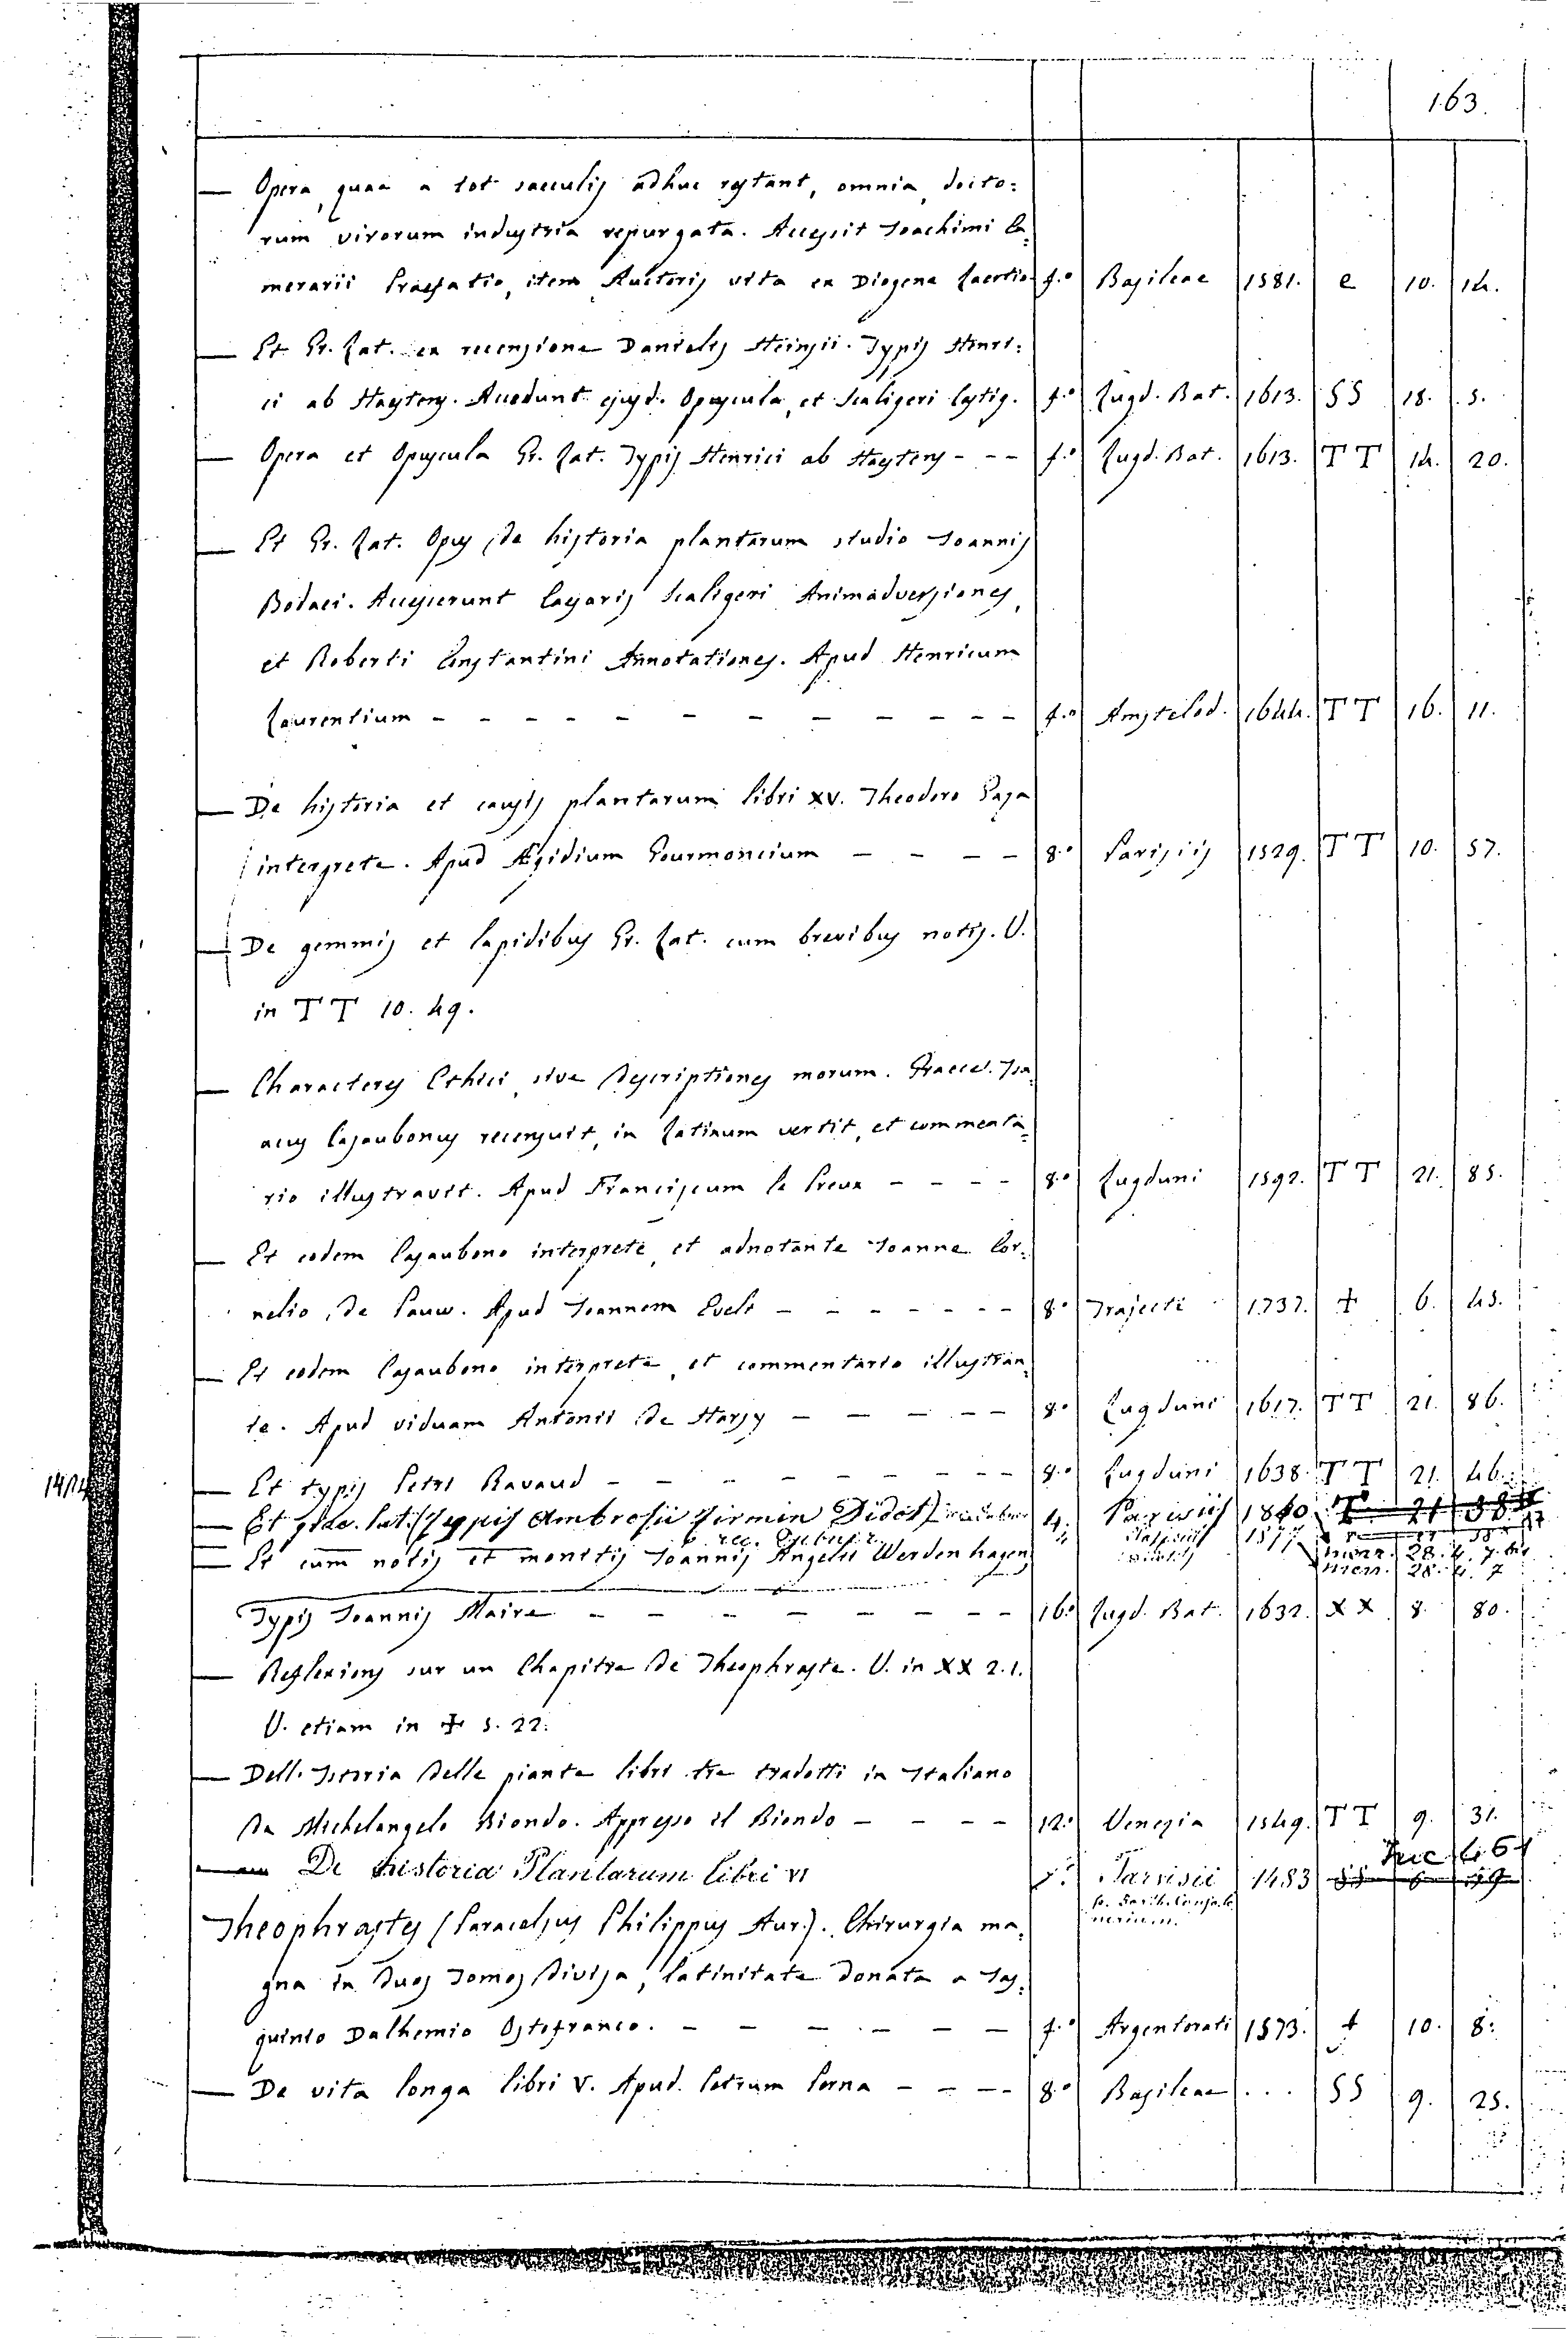 163.
— Opera, quae a tot saeculis adhuc restant, omnia, docto:
rum virorum industria repurgata. Accessit Joachimi Ca:
merarii Praefatio, item Auctoris vita ex Diogene Laertio f.° Basileae 1581. e 10. 14.
— Et Gr. Lat. ex recensione Danielis Heinsii. Typis Henri:
ci ab Haestens. Accedunt ejusd. Opuscula, et Scaligeri Castig. f.° Lugd. Bat. 1613. SS 18. 5.
— Opera et Opuscula Gr. Lat. Typis Henrici ab Haestens - - - f.° Lugd. Bat. 1613. TT 14. 20.
— Et Gr. Lat. Opus de historia plantarum studio Joannis
Bodaei. Accesserunt Caesaris Scaligeri Animadversiones,
et Roberti Constantini Annotationes. Apud Henricum
Laurentium - - - - - - - - - - f.° Amstelod. 1644. TT 16. 11.
— De historia et causis plantarum libri XV. Theodoro Gaza
interprete. Apud Ægidium Gourmoncium - - - - 8.° Parisiis 1529. TT 10. 57.
— De gemmis et lapidibus Gr. Lat. cum brevibus notis. V.
in TT 10. 49.
— Characteres Ethici, sive descriptiones morum. Graece. Isa:
acus Casaubonus recensuit, in Latinum vertit, et commenta:
rio illustravit. Apud Franciscum le Preux - - - - 8.° Lugduni 1592. TT 21. 85.
— Et eodem Casaubono interprete, et adnotante Joanne Cor:
nelio de Pauw. Apud Joannem Evelt - - - - - - - 8.° Trajecti 1737. + 6. 45.
— Et eodem Casaubono interprete, et commentario illustran:
te. Apud viduam Antonii de Harsy - - - - - 8.° Lugduni 1617. TT 21. 86.
— Et typis Petri Ravaud - - - - - - - - - 8.° Lugduni 1638. TT 21. 46.
— Et grae. lat. (Typis Ambrosii Firmin Didot) 4. Parisiis 1840 T 21 38
rec. Dübner 1877 menn. 28. 4. 7. bis
— Et cum notis et monitis Joannis Angelii Werdenhagen menn. 28. 4. 7
Typis Joannis Maire - - - - - - - - 16.° Lugd. Bat. 1632. XX 8. 80.
— Reflexions sur un Chapitre de Theophraste. V. in XX 2. 1.
V. etiam in + 5. 22.
— Dell'Istoria delle piante libri tre tradotti in Italiano
da Michelangelo Biondo. Appresso il Biondo - - - - 12.° Venezia 1549. TT 9. 31.
Inc 461
— De historia Plantarum libri VI f.° Tarvisii 1483 SS 6 19
p. Barth. Confalo
nerium.
Theophrastes (Paracelsus Philippus Aur.). Chirurgia ma:
gna in duos Tomos divisa, latinitate donata a Jos:
quinio Dalhemio Ostofranco. - - - - - - f.° Argentorati 1573. + 10. 8.
— De vita longa libri V. Apud Petrum Perna - - - - 8.° Basileae . . . SS 9. 25.